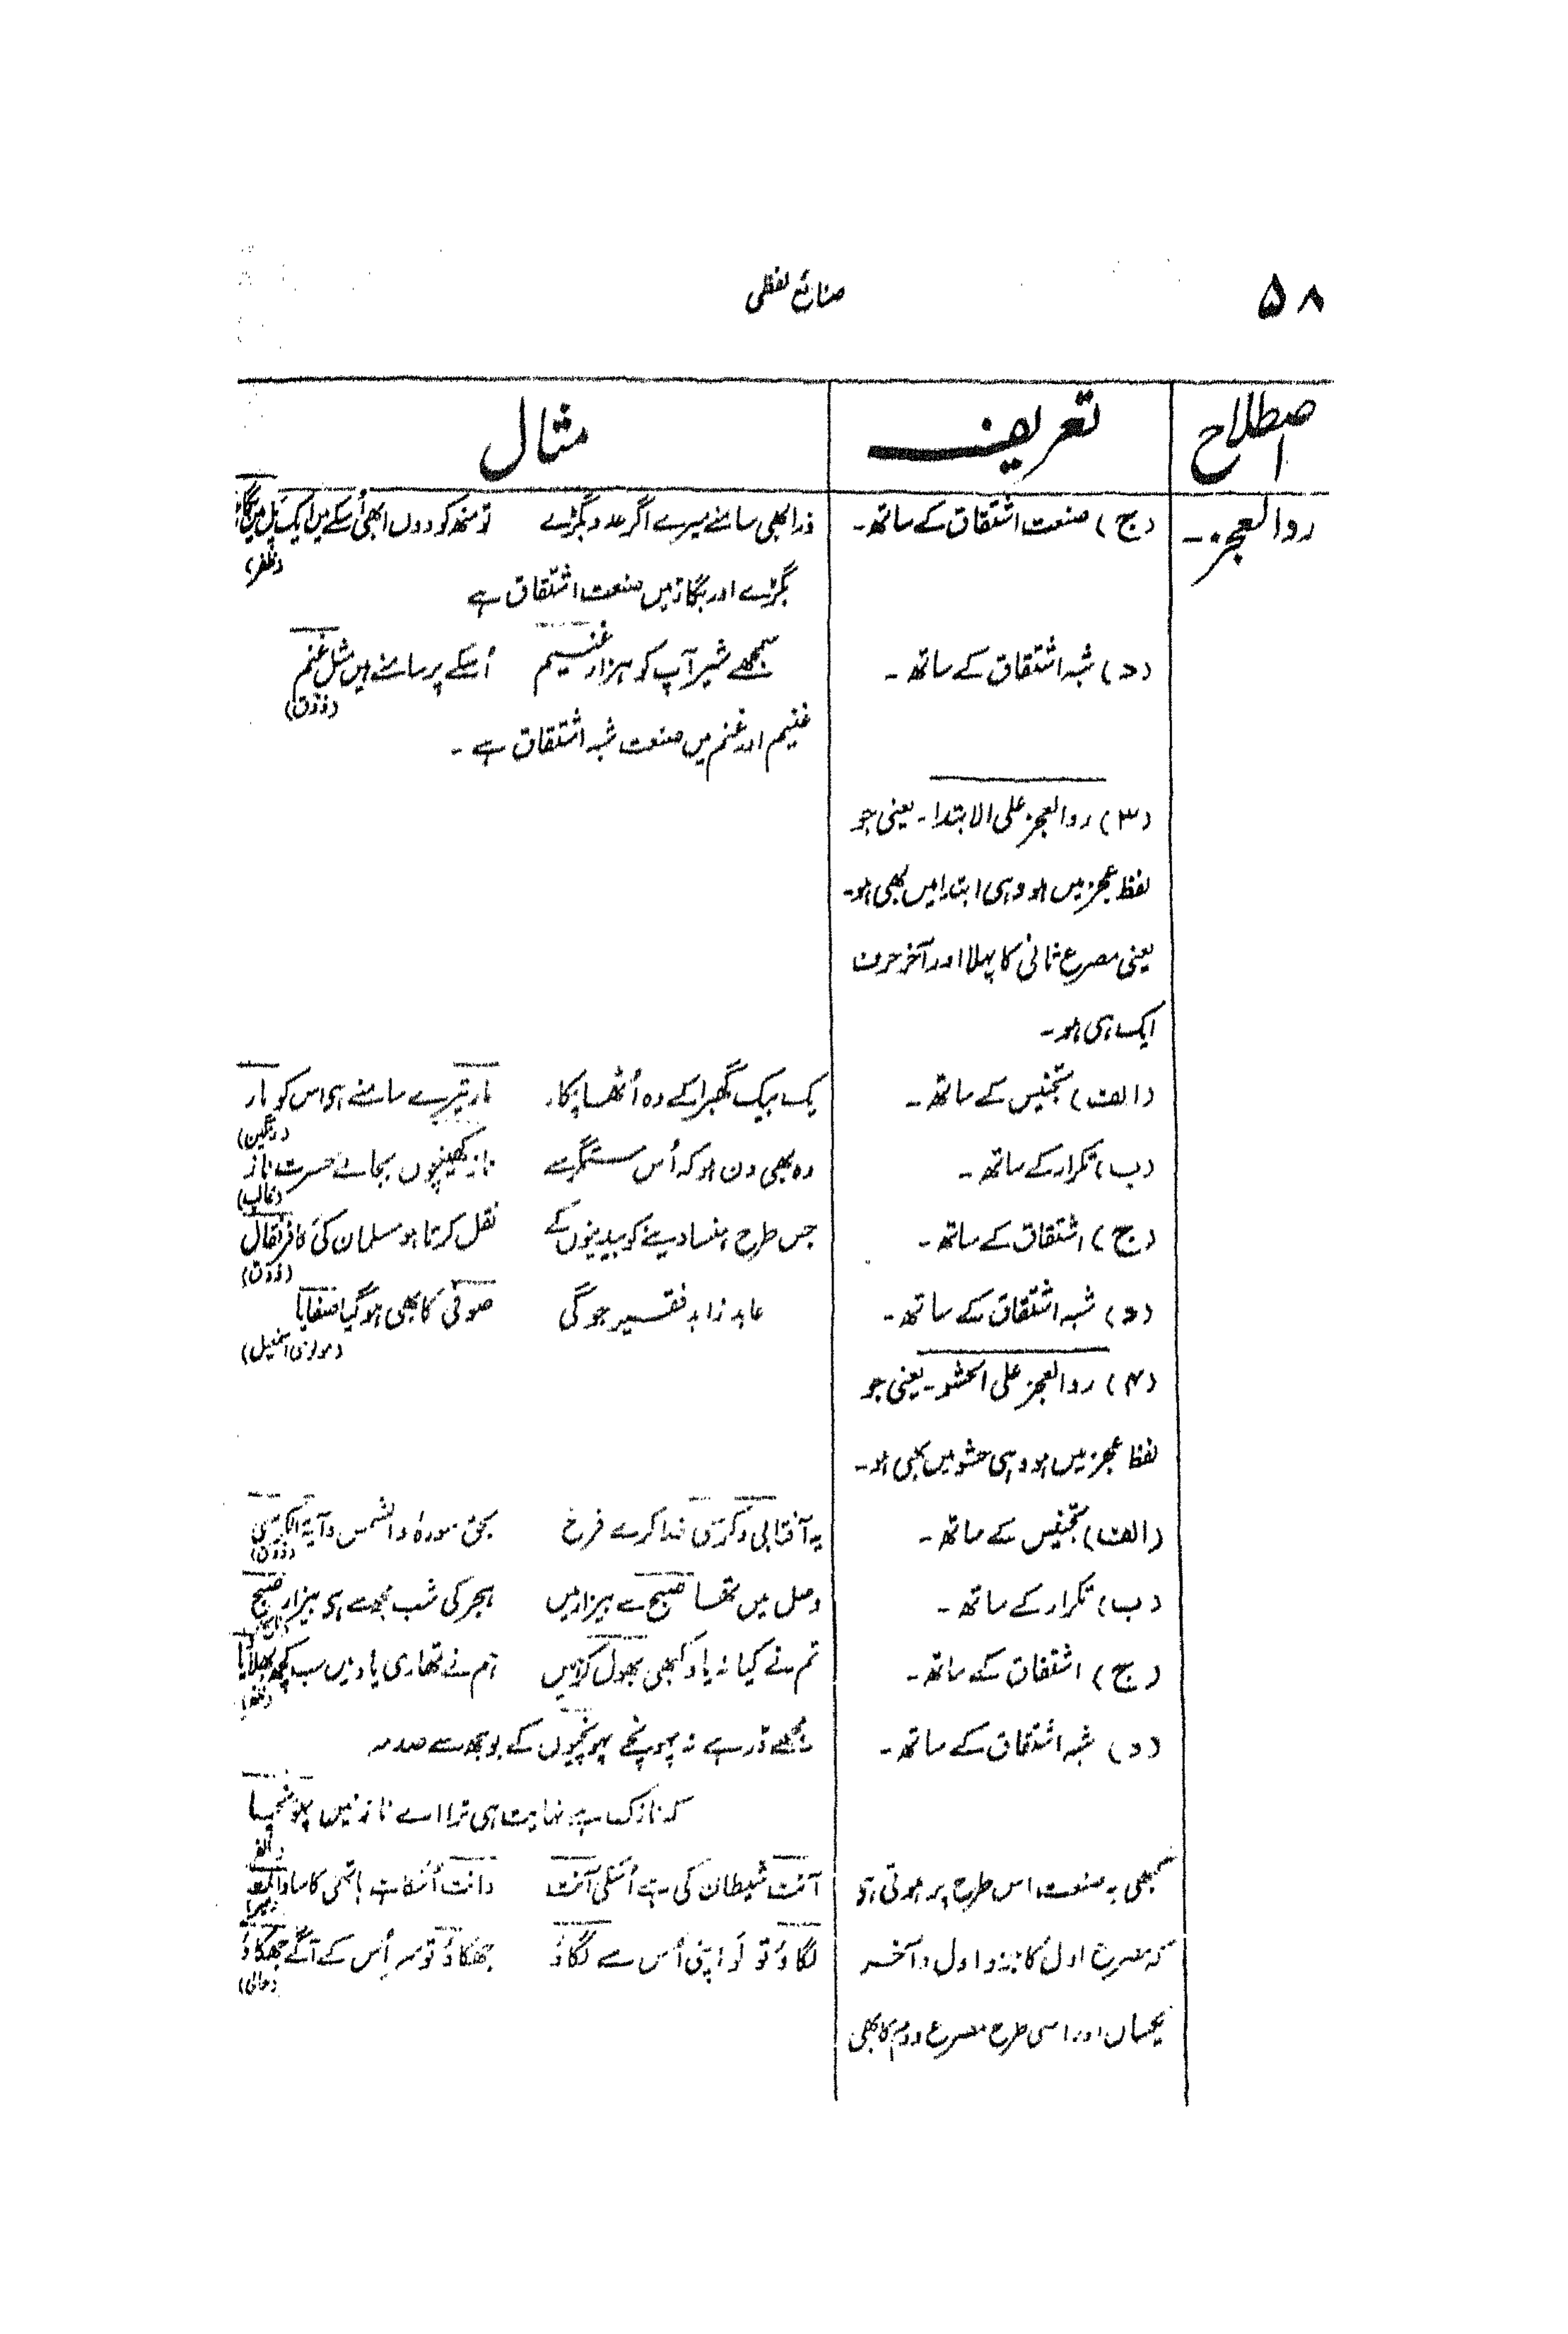 ۵۸
صنائع لفظی
اصطلاح
تعریف
مثال
ردالعجز۔
(ج) صنعت اشتقاق کے ساتھ۔
ذرا بھی سامنے میرے اگر عدو بگڑے
تو منھ کو دوں ابھی اُسکے میں ایک پل میں بگاڑ
(ظفر)
بگڑے اور بگاڑ میں صنعت اشتقاق ہے
(د) شبہ اشتقاق کے ساتھ۔
سمجھے شیر آپ کو ہزار غنیم
اُسکے پر سامنے ہیں مثل غنم
(ذوق)
غنیم اور غنم میں صنعت شبہ اشتقاق ہے۔
(۳) ردالعجز علی الابتدا۔ یعنی جو
لفظ عجز میں ہو وہی ابتدا میں بھی ہو۔
یعنی مصرع ثانی کا پہلا اور آخر حرف
ایک ہی ہو۔
(الف) تجنیس کے ساتھ۔
یک بیک گھبرا کے وہ اُٹھا پکار
مار تیرے سامنے ہی اس کو مار
(رنگین)
(ب) تکرار کے ساتھ۔
وہ بھی دن ہو کہ اُس ستمگر سے
ناز کھینچوں بجائے حسرت ناز
(غالب)
(ج) اشتقاق کے ساتھ۔
جس طرح ہنسا دینے کو بیدینوں کے
نقل کرتا ہو مسلمان کی کافر نقال
(ذوق)
(د) شبہ اشتقاق کے ساتھ۔
عابد زاہد فقیر جوگی
صوفی کا بھی ہو گیا صفایا
(مولوی اسمٰعیل)
(۴) ردالعجز علی الحشو۔ یعنی جو
لفظ عجز میں ہو وہی حشو میں بھی ہو۔
(الف) تجنیس کے ساتھ۔
یہ آفتابی و کرسی خدا کرے فرخ
بحق سورۂ والشمس و آیۃ الکرسی
(ذوق)
(ب) تکرار کے ساتھ۔
وصل میں تھا صبح سے بیزار میں
ہجر کی شب مجھ سے ہی بیزار صبح
(ج) اشتقاق کے ساتھ۔
تم نے کیا نہ یاد کبھی بھول کر ہمیں
ہم نے تمھاری یاد میں سب کچھ بھلا دیا
(ظفر)
(د) شبہ اشتقاق کے ساتھ۔
مجھے ڈر ہے نہ پہونچے پہونچیوں کے بوجھ سے صدمہ
کہ نازک ہے نہایت ہی ترا اے نازنیں پہونچا
(ظفر)
کبھی یہ صنعت اس طرح پر ہوتی ہی
آنت شیطان کی ہے اُسکی آنت
دانت اُسکا ہے ہاتھی کا سا دانت
(میر)
کہ مصرع اول کا جزو اول و آخر
لگاؤ تو لَو اپنی اُس سے لگاؤ
جھکاؤ تو سر اُس کے آگے جھکاؤ
(حالی)
یکساں اور اسی طرح مصرع دوم کا بھی